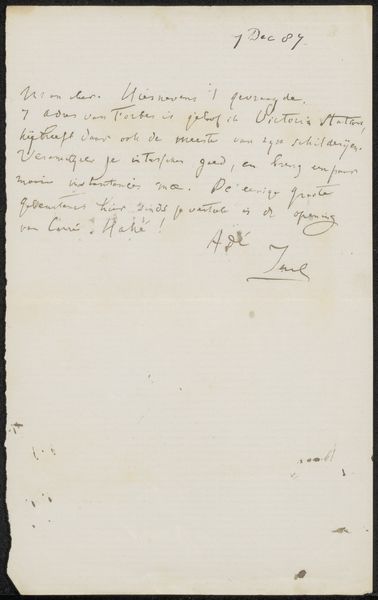 7 Dec 87.
Mon cher. Hiernevens 't gevraagde.
't adres van Forbes is geloof ik Victoria Station,
hij heeft daar ook de meeste van zijn schilderijen.
je intusschen goed, en breng een paar
mooie mee. De eenige groote
gebeurtenis hier sinds je vertrek is de opening
van Carré. Hahé!
Adé